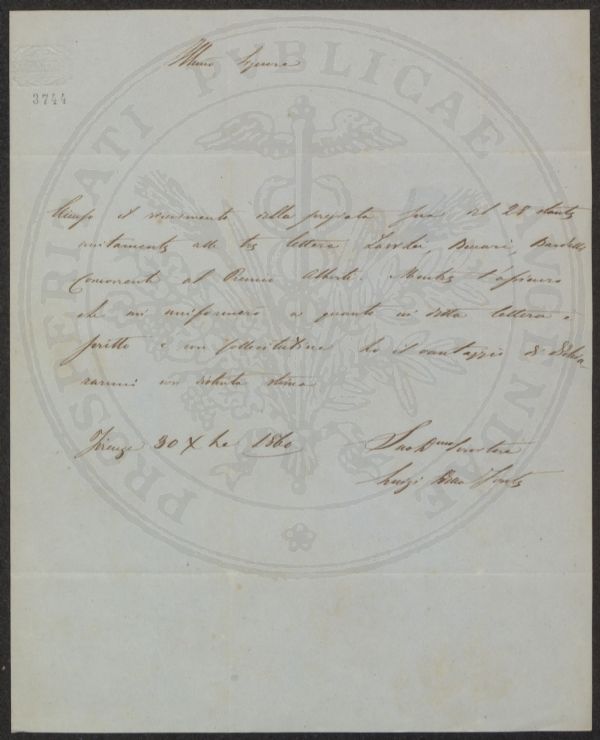 PROSPERITATI PUBLICAE AVGENDAE
3744
Illmo Signore
Accuso il ricevimento della pregiata sua del 28 stante
unitamente alle tre lettere
Concorrenti al Premio Alberti. Mentre l'assicuro
che mi uniformerò a quanto in detta lettera è
scritto e con sollecitudine ho il vantaggio di dichia-
rarmi con distinta stima
Firenze 30 Xbre 1860
Suo Servitore
Luigi